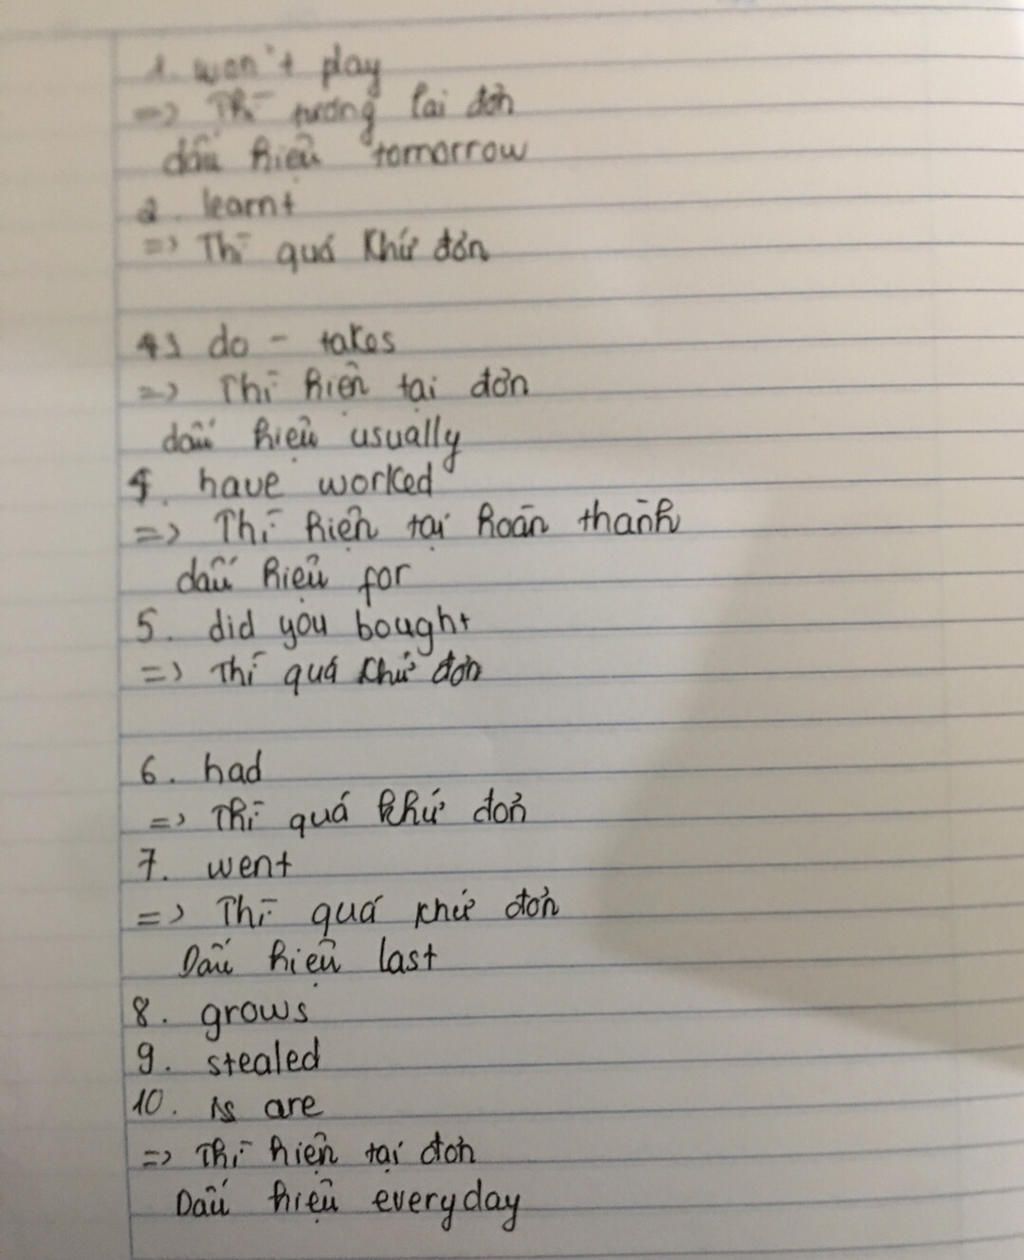 1. won't play
=> Thì tương lai đơn
dấu hiệu tomorrow
2. learnt
=> Thì quá khứ đơn
do - takes
=> Thì hiện tại đơn
dấu hiệu usually
4. have worked
=> Thì hiện tại hoàn thành
dấu hiệu for
5. did you bought
=> Thì quá khứ đơn
6. had
=> Thì quá khứ đơn
7. went
=> Thì quá khứ đơn
Dấu hiệu last
8. grows
9. stealed
10. is are
=> Thì hiện tại đơn
Dấu hiệu everyday